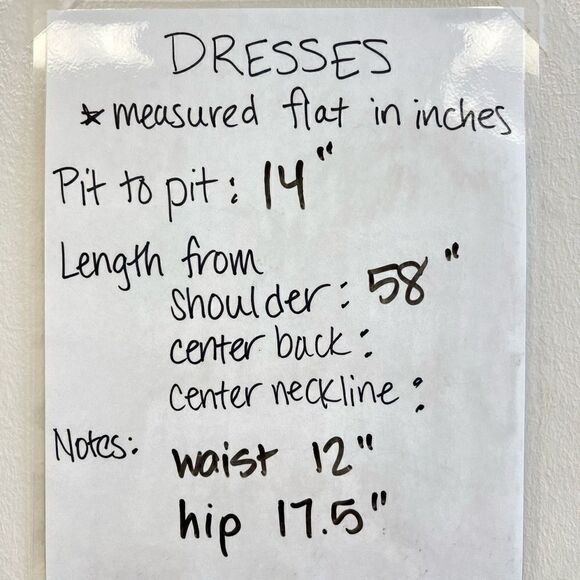 DRESSES
* measured flat in inches
Pit to pit: 14"
Length from
shoulder: 58"
center back:
center neckline:
Notes: waist 12"
hip 17.5"